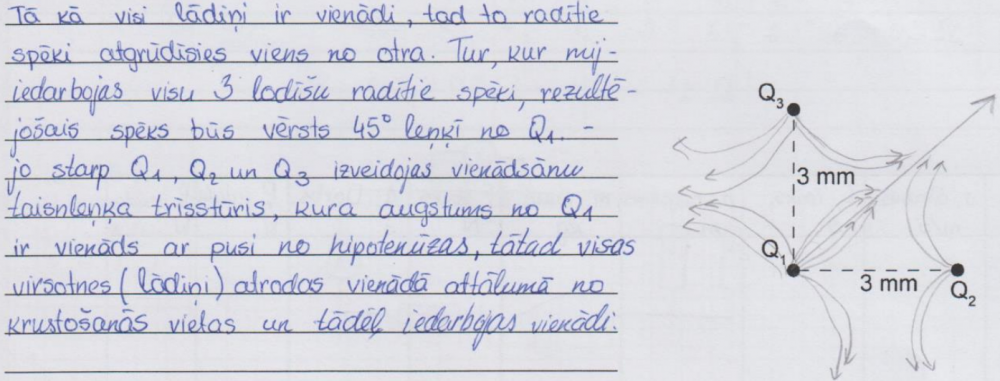 Tā kā visi lādiņi ir vienādi, tad to radītie
spēki atgrūdīsies viens no otra. Tur, kur mij-
iedarbojas visu 3 lodīšu radītie spēki, rezultē-
jošais spēks būs vērsts 45° leņķī no Q1. -
jo starp Q1, Q2 un Q3 izveidojas vienādsānu
taisnleņķa trīsstūris, kura augstums no Q1
ir vienāds ar pusi no hipotenūzas, tātad visas
virsotnes (lādiņi) atrodas vienādā attālumā no
krustošanās vietas un tādēļ iedarbojas vienādi.
Q3
3 mm
Q1
3 mm
Q2